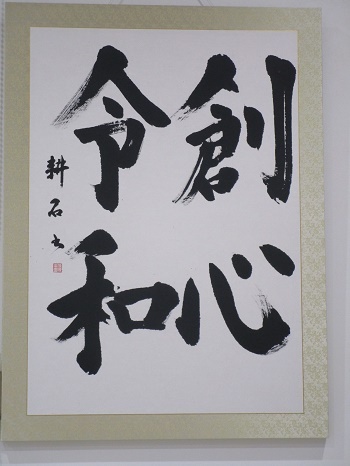 創心
令和
耕石書